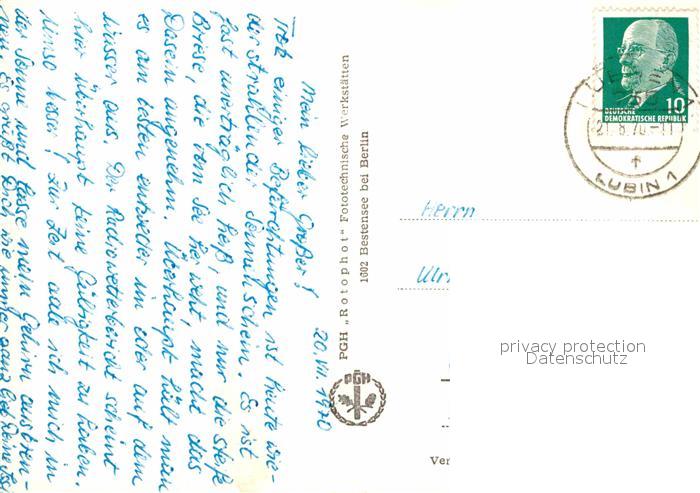 Mein lieber Großer!
20. VIII. 1970
Trotz einiger Befürchtungen ist heute wie-
der strahlender Sonnenschein. Es ist
fast unerträglich heiß, und nur die steife
Briese, die von See her weht, macht das
Dasein angenehm. Überhaupt hält man
es am besten entweder im oder auf dem
Wasser aus. Der Radiowetterbericht scheint
hier überhaupt keine Gültigkeit zu haben.
Umso besser! Zur Zeit aale ich mich in
der Sonne und lasse mein Gehirn austrock-
nen. Es grüßt Dich wie immer ganz lieb Deine
PGH „Rotophot" Fototechnische Werkstätten
1602 Bestensee bei Berlin
PGH
Herrn
Ulri
Ver
10
DEUTSCHE
DEMOKRATISCHE REPUBLIK
21.8.70-11
LUBIN 1
privacy protection
Datenschutz